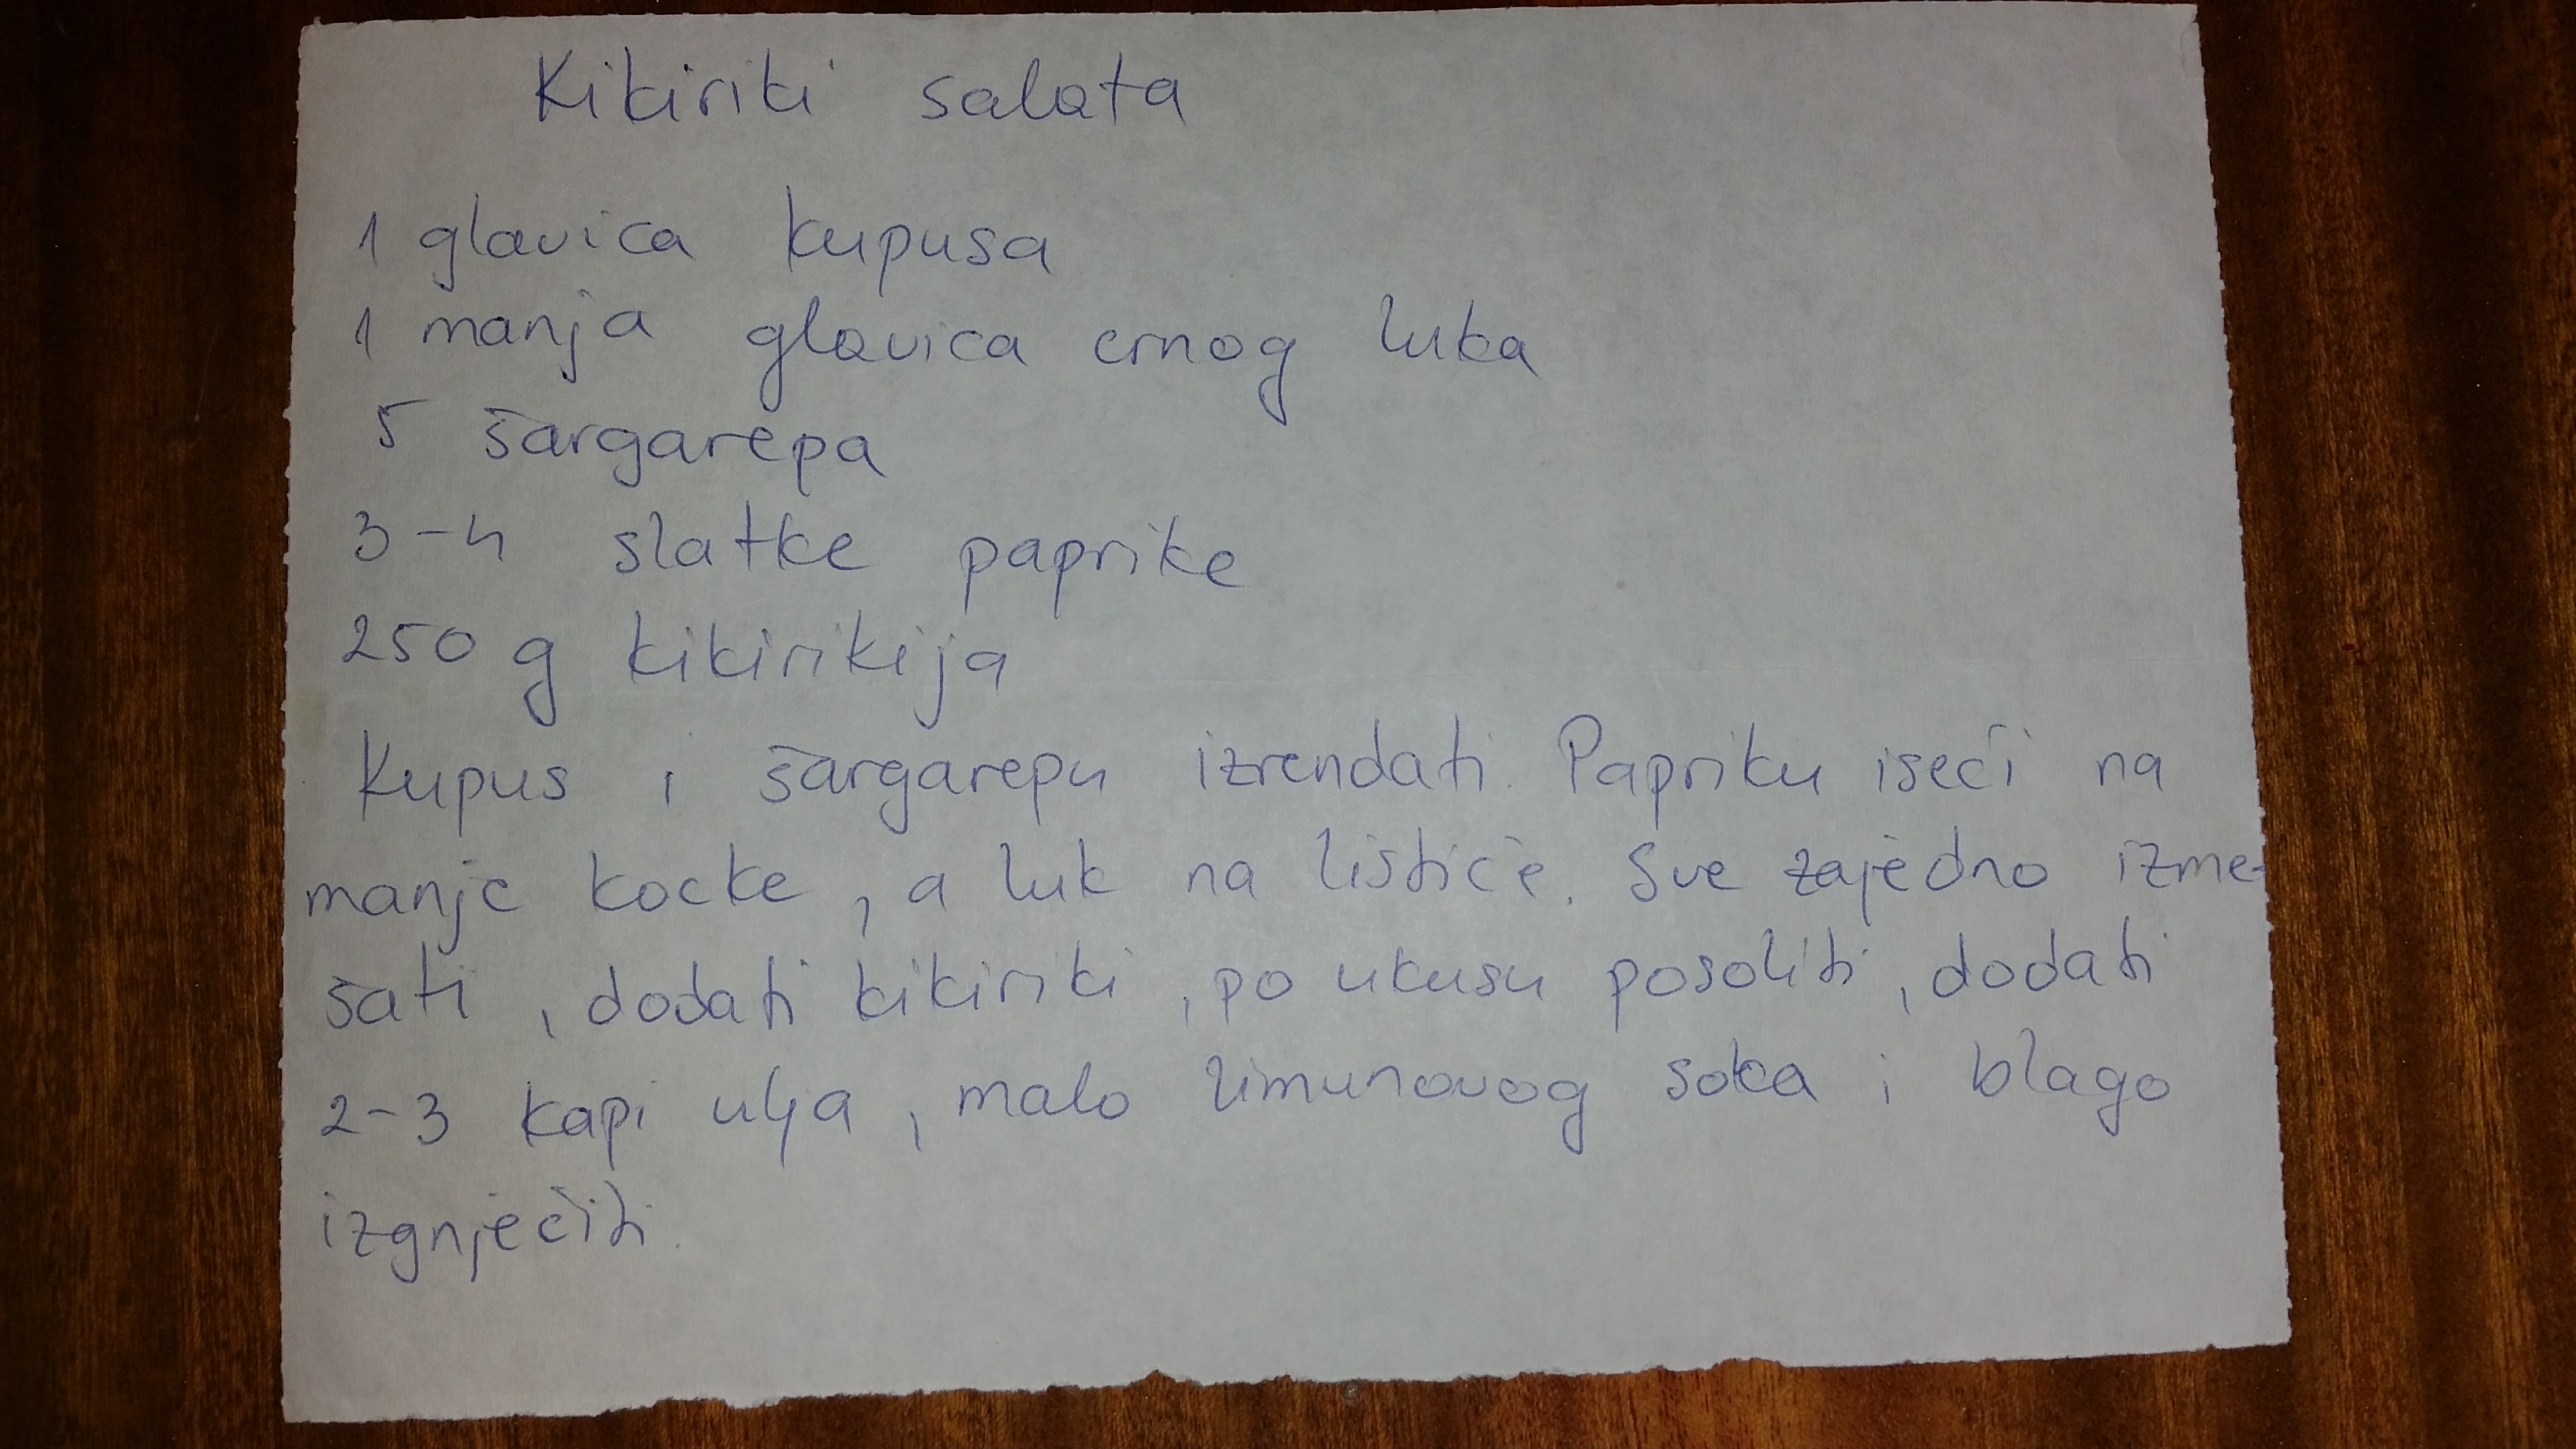 Kikiriki salata
1 glavica kupusa
1 manja glavica crnog luka
5 šargarepa
3-4 slatke paprike
250 g kikirikija
Kupus i šargarepu izrendati. Papriku iseći na
manje kocke, a luk na listiće. Sve zajedno izme-
šati, dodati kikiriki, po ukusu posoliti, dodati
2-3 kapi ulja, malo limunovog soka i blago
izgnječiti.